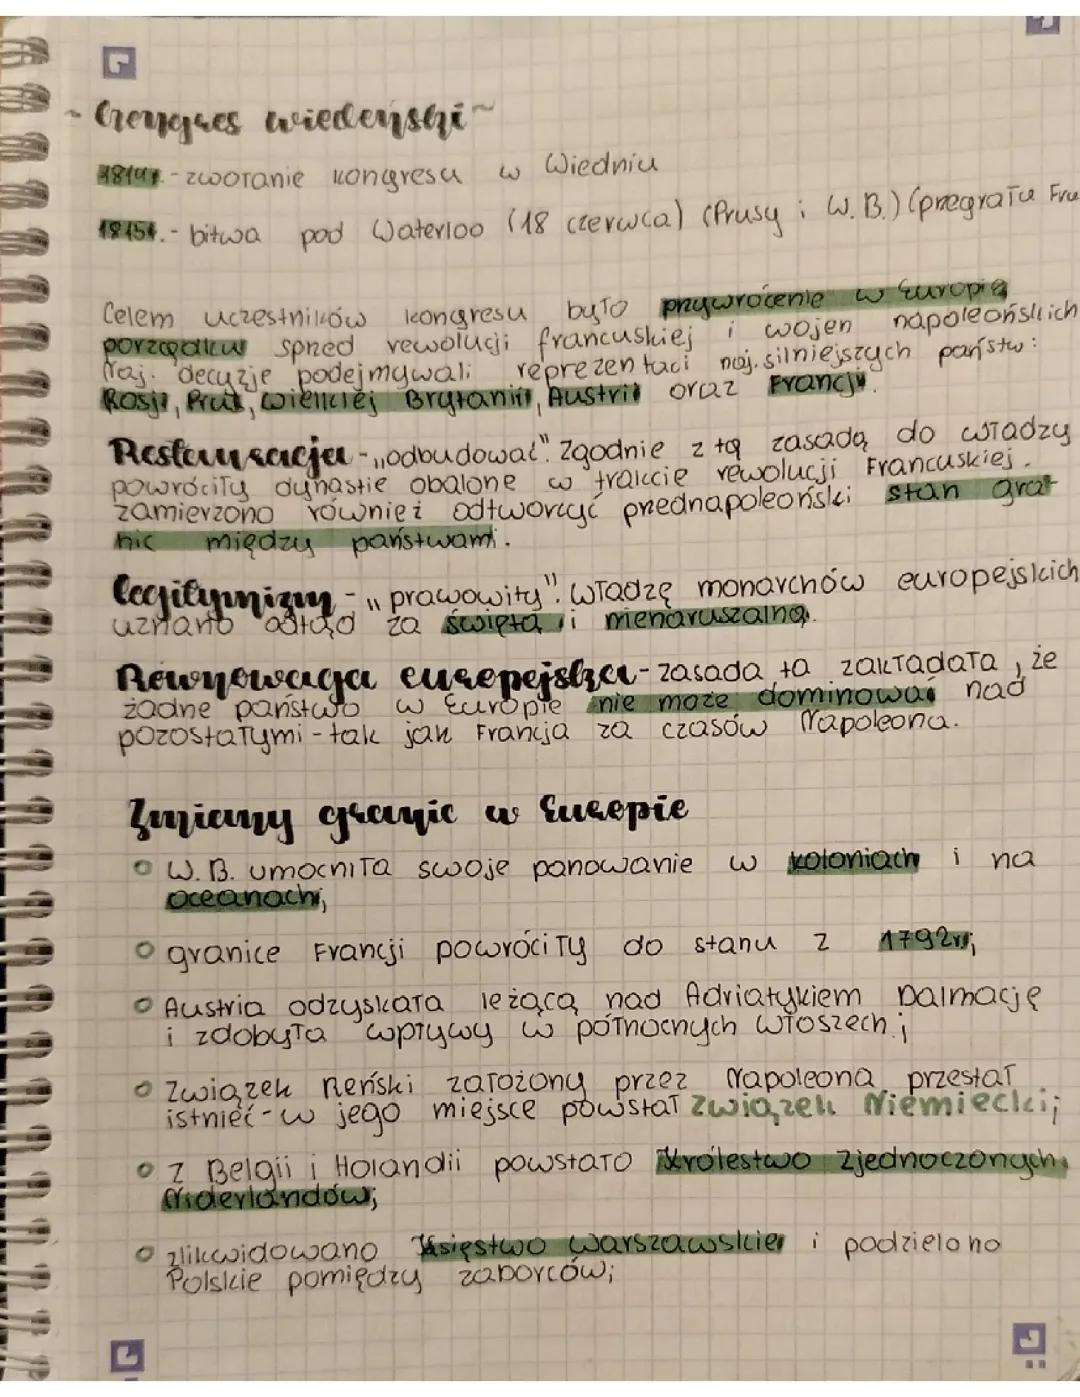 ~ Kongres wiedeński ~
1814r. - zwołanie kongresu w Wiedniu
1815r. - bitwa pod Waterloo (18 czerwca) (Prusy i W.B.) (pregrała Fra
Celem uczestników kongresu było przywrócenie w Europie
porządku sprzed rewolucji francuskiej i wojen napoleońskich
Naj. decyzje podejmywali reprezentaci naj.silniejszych państw:
Rosji, Prus, Wielkiej Brytanii, Austrii oraz Francji.
Restauracja - "odbudować". Zgodnie z tą zasadą do władzy
powróciły dynastie obalone w trakcie rewolucji Francuskiej.
zamierzono również odtworzyć prednapoleoński stan gra-
nic między państwami.
Legitymizm - "prawowity". Władzę monarchów europejskich
uznano odtąd za świętą i nienaruszalną.
Równowaga europejska - zasada ta zakładała, że
żadne państwo w Europie nie może dominować nad
pozostałymi - tak jak Francja za czasów Napoleona.
Zmiany granic w Europie
○ W.B. umocniła swoje panowanie w koloniach i na
oceanach;
○ granice Francji powróciły do stanu z 1792r.;
○ Austria odzyskała leżącą nad Adriatykiem Dalmację
i zdobyła wpływy w północnych Włoszech;
○ Związek Reński założony przez Napoleona przestał
istnieć - w jego miejsce powstał Związek Niemiecki;
○ z Belgii i Holandii powstało Królestwo Zjednoczonych
Niderlandów;
○ zlikwidowano Księstwo Warszawskie i podzielono
Polskie pomiędzy zaborców;